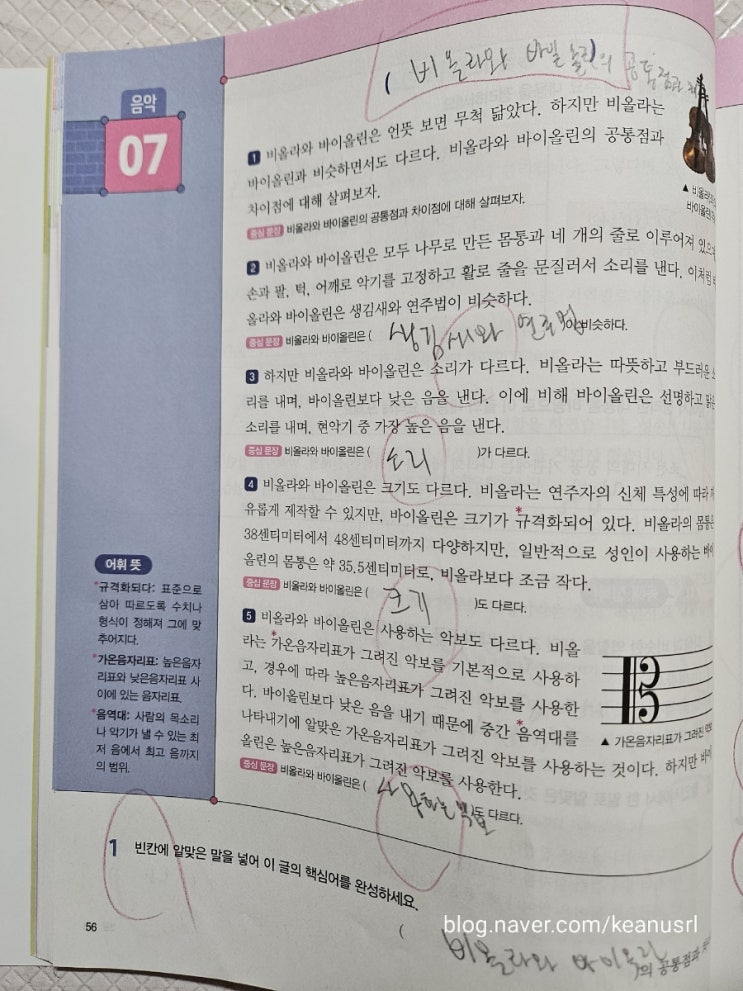 ( 비올라와 바빌올린)의 공통점과
음악
07
1 비올라와 바이올린은 언뜻 보면 무척 닮았다. 하지만 비올라는
바이올린과 비슷하면서도 다르다. 비올라와 바이올린의 공통점과
차이점에 대해 살펴보자.
중심 문장 비올라와 바이올린의 공통점과 차이점에 대해 살펴보자.
▲ 비올라
바이올린
2 비올라와 바이올린은 모두 나무로 만든 몸통과 네 개의 줄로 이루어져 있으
손과 팔, 턱, 어깨로 악기를 고정하고 활로 줄을 문질러서 소리를 낸다. 이처럼
올라와 바이올린은 생김새와 연주법이 비슷하다.
중심 문장 비올라와 바이올린은 ( 생김새와 연주법 비슷하다.
3 하지만 비올라와 바이올린은 소리가 다르다. 비올라는 따뜻하고 부드러운
리를 내며, 바이올린보다 낮은 음을 낸다. 이에 비해 바이올린은 선명하고 맑은
소리를 내며, 현악기 중 가장 높은 음을 낸다.
중심 문장 비올라와 바이올린은 ( 소리 )가 다르다.
4 비올라와 바이올린은 크기도 다르다. 비올라는 연주자의 신체 특성에 따라
유롭게 제작할 수 있지만, 바이올린은 크기가 *규격화되어 있다. 비올라의 몸통은
38센티미터에서 48센티미터까지 다양하지만, 일반적으로 성인이 사용하는 바이
올린의 몸통은 약 35.5센티미터로, 비올라보다 조금 작다.
중심 문장 비올라와 바이올린은 ( 크기 )도 다르다.
5 비올라와 바이올린은 사용하는 악보도 다르다. 비올
라는 *가온음자리표가 그려진 악보를 기본적으로 사용하
고, 경우에 따라 높은음자리표가 그려진 악보를 사용한
다. 바이올린보다 낮은 음을 내기 때문에 중간 *음역대를
나타내기에 알맞은 가온음자리표가 그려진 악보를 사용하는 것이다. 하지만 바이
올린은 높은음자리표가 그려진 악보를 사용한다.
▲ 가온음자리표가 그려진 악보
중심 문장 비올라와 바이올린은 ( 사용하는 악보 도 다르다.
어휘 뜻
*규격화되다: 표준으로
삼아 따르도록 수치나
형식이 정해져 그에 맞
추어지다.
*가온음자리표: 높은음자
리표와 낮은음자리표 사
이에 있는 음자리표.
*음역대: 사람의 목소리
나 악기가 낼 수 있는 최
저 음에서 최고 음까지
의 범위.
1 빈칸에 알맞은 말을 넣어 이 글의 핵심어를 완성하세요.
( 비올라와 바이올린 의 공통점과
56
blog.naver.com/keanusrl